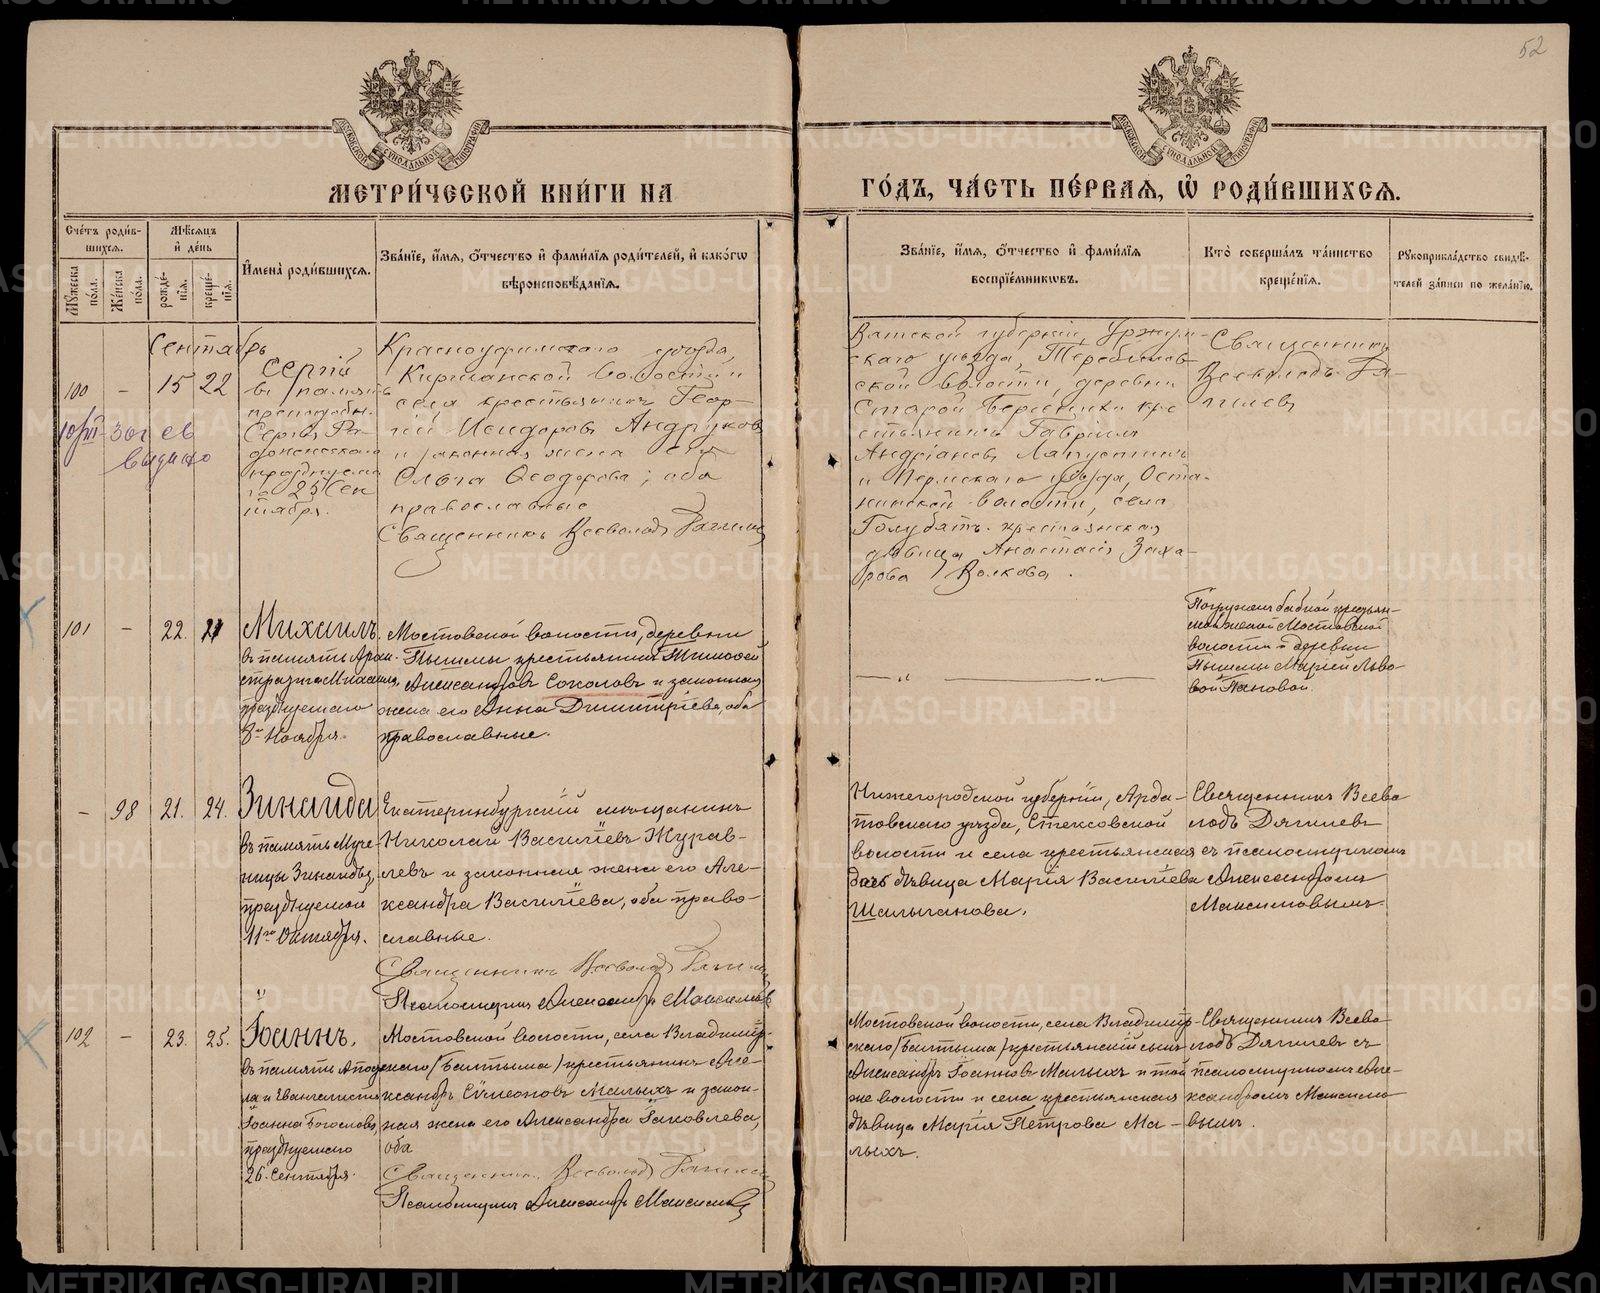 52
МОСКОВСКОЙ СѴНОДАЛЬНОЙ ТИПОГРАФІИ
МОСКОВСКОЙ СѴНОДАЛЬНОЙ ТИПОГРАФІИ
МЕТРИ́ЧЕСКОЙ КНИ́ГИ НА
ГО́ДЪ, ЧА́СТЬ ПЕ́РВАЯ, Ѡ҆ РОДИ́ВШИХСЯ.
Сче́тъ роди́в-
шихся.
Мѣ́сяцъ
и҆ де́нь
Мꙋ́жеска по́ла.
Же́нска по́ла.
рожде́-
нія.
креще́-
нія.
И҆мена̀ роди́вшихся.
Зва́ніе, и҆́мя, ѻ҆́тчество и҆ фами́лія роди́телей, и҆ како́гѡ
вѣроисповѣ́данія.
Зва́ніе, и҆́мя, ѻ҆́тчество и҆ фами́лія
воспріе́мникѡвъ.
Кто̀ соверша́лъ та́инство
креще́нія.
Рꙋкоприкла́дство свидѣ́-
телей за́писи по жела́нію.
Сентябрь
100 - 15 22
Сергій
въ память
преподобн.
Сергія Ра-
донежскаго
празднуема
го 25 Сен
тября.
Красноуфимскаго уѣзда
Киргишанской волости и
села крестьянинъ Геор-
гій Исидоровъ Андруковъ
и законная жена его
Ольга Ѳеодорова; оба
православные
Священникъ Всеволодъ Дягилевъ
Вятской губерніи, Уржум-
скаго уѣзда,
ской волости, деревни
Старой Березники кре
стьянинъ Гавріилъ
Андріановъ Лапустинъ
и Пермскаго уѣзда, Оста-
нинской волости, села
Голубятъ крестьянская
дѣвица Анастасія Заха-
рова Волкова.
Священникъ
Всеволодъ Дя-
гилевъ
выдано
101 - 22. 21
Михаилъ.
въ память Архи-
стратига Михаила,
празднуемаго
8го Ноября.
Мостовской волости, деревни
Пышмы крестьянинъ Тимоѳей
Александровъ Соколовъ и законная
жена его Анна Димитріева, оба
православные.
— „ — „ —
Погруженъ бабкой крестьян-
ской женой Мостовской
волости и деревни
Пышмы Маріей Льво-
вой Пановой.
- 98 21. 24.
Зинаида
въ память Муче-
ницы Зинаиды,
празднуемой
11го Октября.
Екатеринбургскій мѣщанинъ
Николай Васильевъ Журав-
левъ и законная жена его Але-
ксандра Васильева, оба право-
славные.
Священникъ Всеволодъ Дягилевъ
Псаломщикъ Александръ Максимовъ
Нижегородской губерніи, Арда-
товскаго уѣзда, Стексовской
волости и села крестьянская
дочь дѣвица Марія Васильева
Шалыганова.
Священникъ Всево
лодъ Дягилевъ
съ псаломщикомъ
Александромъ
Максимовымъ.
102 - 23. 25.
Іоаннъ.
въ память Апосто
ла и Евангелиста
Іоанна Богослова,
празднуемаго
26. Сентября.
Мостовской волости, села Владимір-
скаго /Балтыма/ крестьянинъ Але-
ксандръ Сѵмеоновъ Малыхъ и закон-
ная жена его Александра Іаковлева,
оба
Священникъ Всеволодъ Дягилевъ
Псаломщикъ Александръ Максимовъ
Мостовской волости, села Владимір-
скаго /Балтыма/ крестьянскій сынъ
Александръ Іоанновъ Малыхъ и той
же волости и села крестьянская
дѣвица Марія Петрова Ма-
лыхъ.
Священникъ Всево
лодъ Дягилевъ съ
псаломщикомъ Але-
ксандромъ Максимо
вымъ.
METRIKI.GASO-URAL.RU